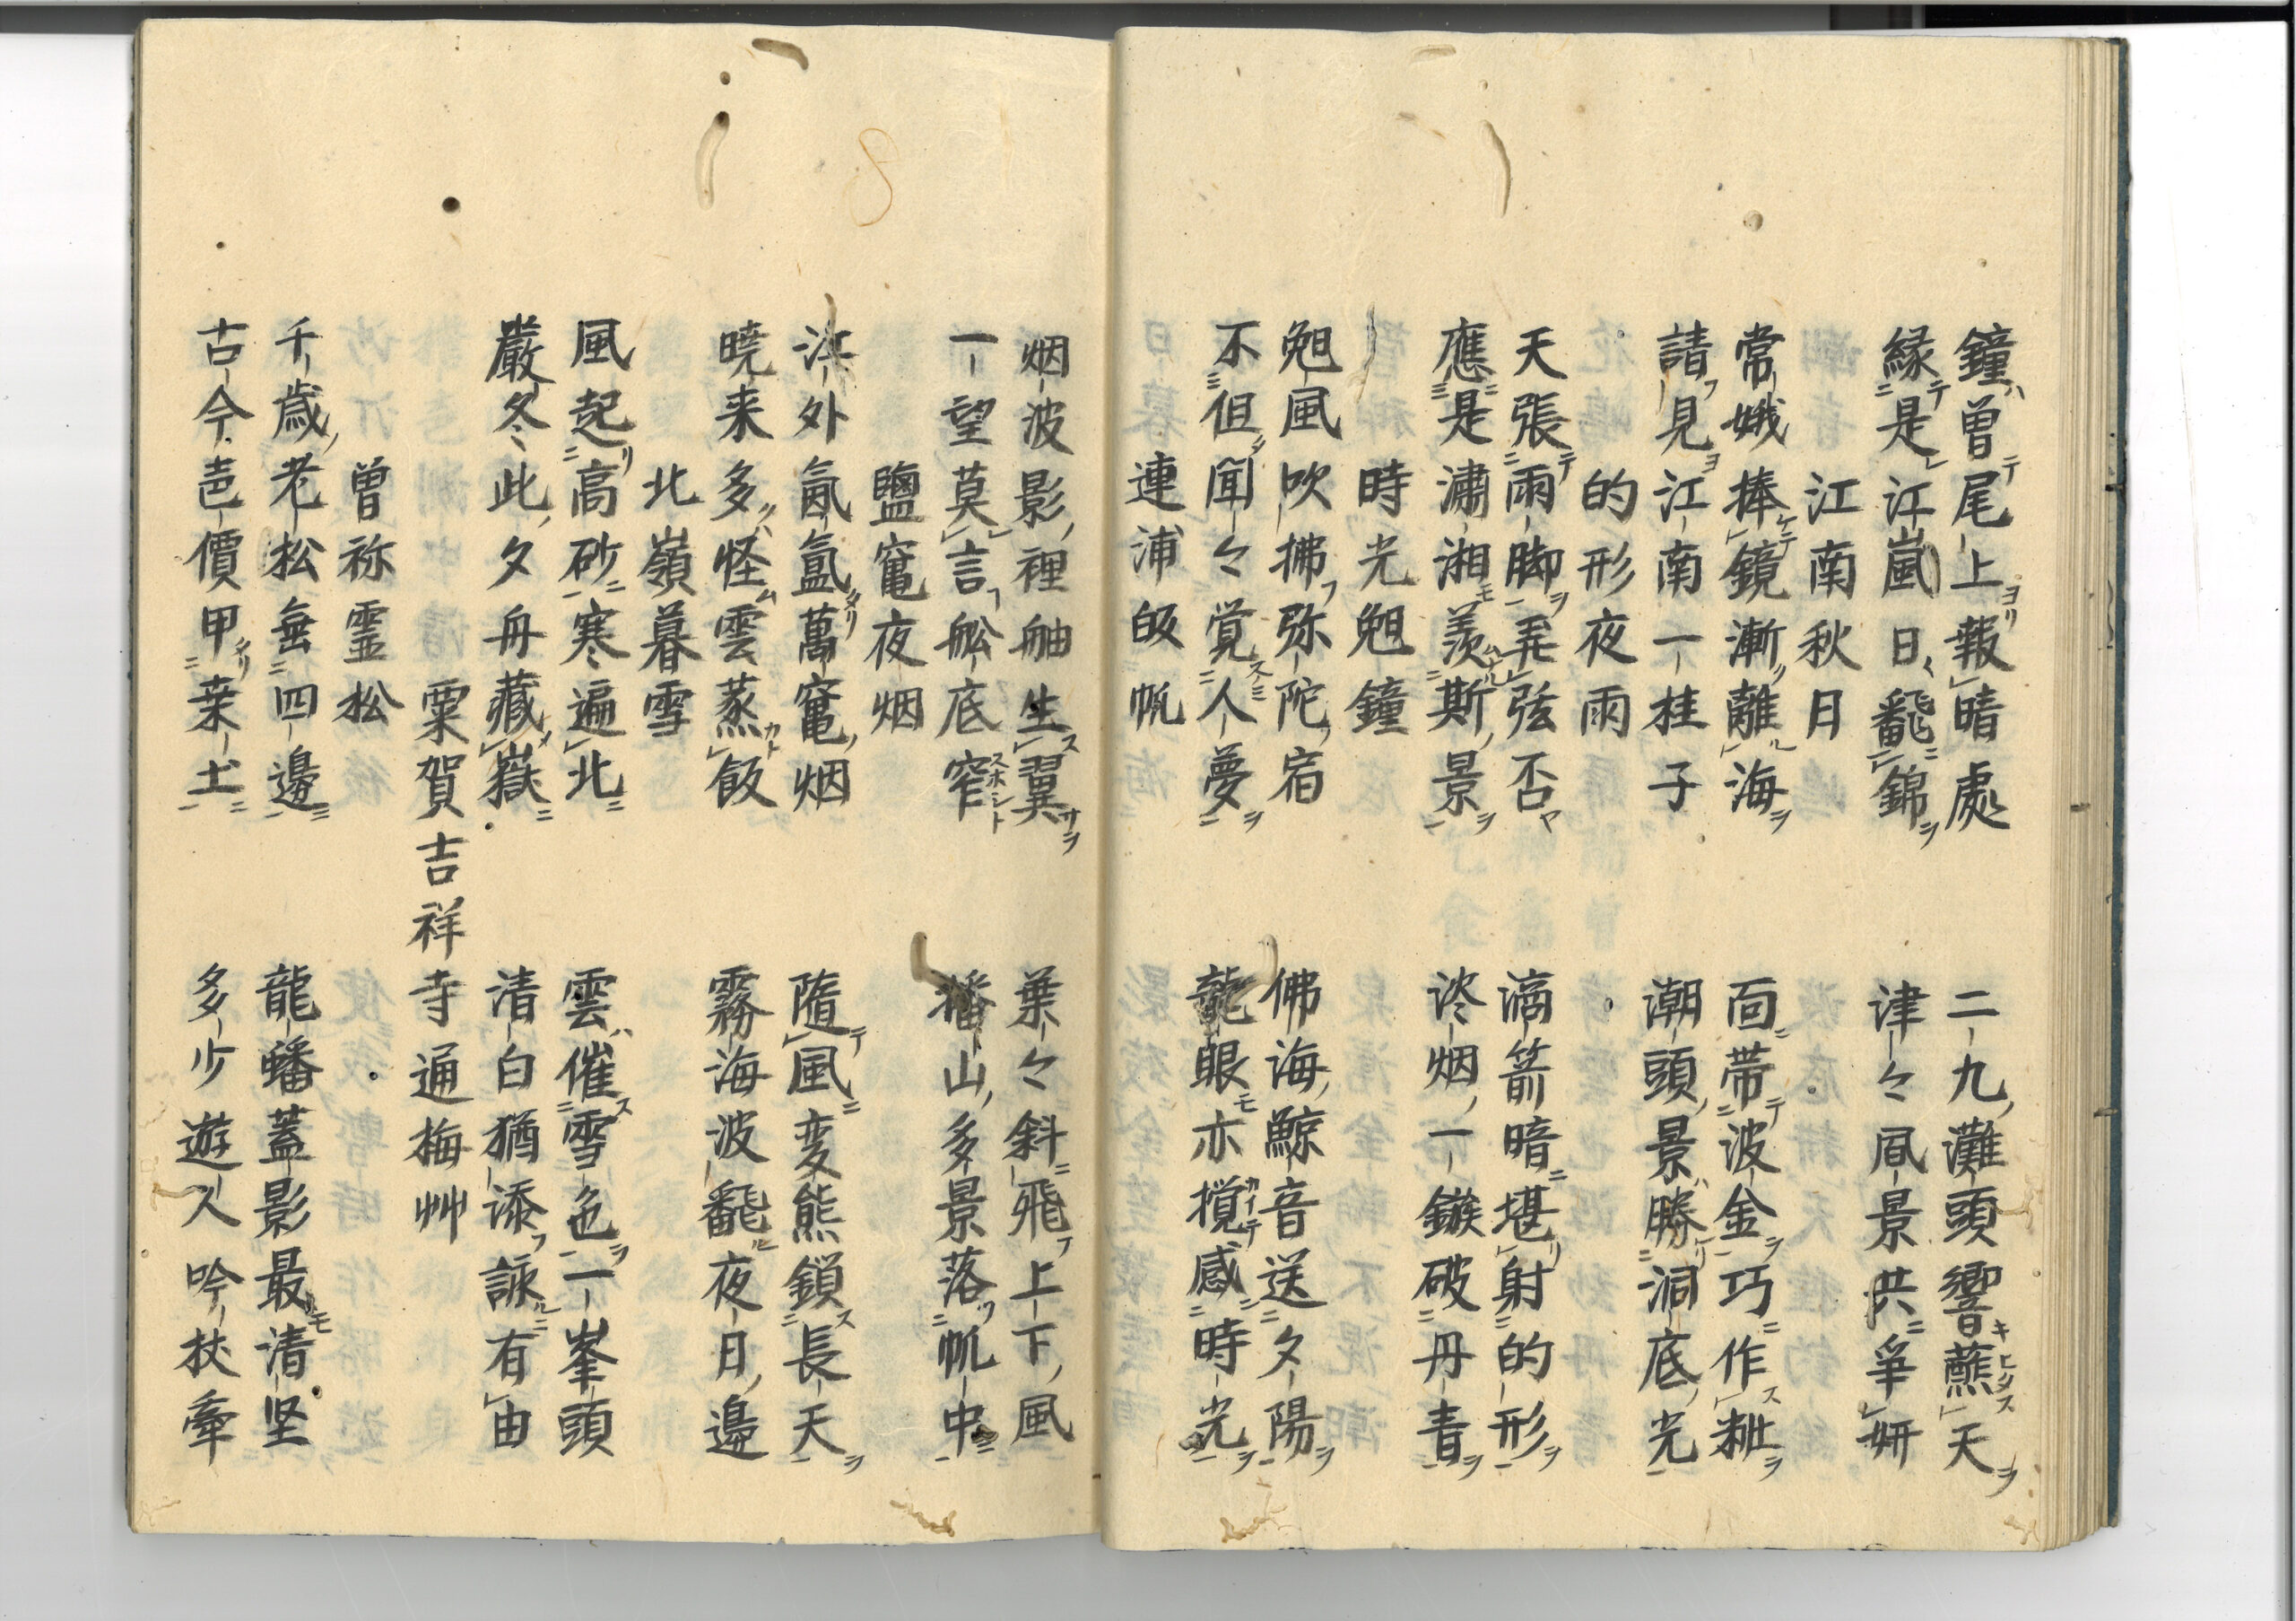 鐘曽尾上報晴處　二九灘頭響蘸天
縁是江嵐日飜錦　津々風景共爭妍
江南秋日
常娥捧鏡漸離海　面帯波金巧作粧
請見江南一桂子　潮頭景勝洞底光
的形夜雨
天張雨脚弄弦否　滴箭暗堪射的形
應是瀟湘羨斯景　淡烟一鏃破丹青
時光晩鐘
晩風吹拂弥陀宿　佛海鯨音送夕陽
不但聞々覚人夢　龍眼亦撹感時光
連浦皈帆
烟波影裡舳生翼　葉々斜飛上下風
一望莫言舩底窄　播山多景落帆中
鹽竃夜烟
江外氤氳萬竃烟　隨風変熊鎖長天
曉来多怪雲蒸飯　霧海波飜夜日邊
北嶺暮雪
風起高砂寒遍北　雲催雪色一峯頭
嚴冬此夕舟藏嶽　清白猶添詠有由
粟賀吉祥寺通梅艸
曽祢霊松
千歳老松垂四邊　龍蟠蓋影最清堅
古今壱價甲葉土　多少遊人吟扙牽